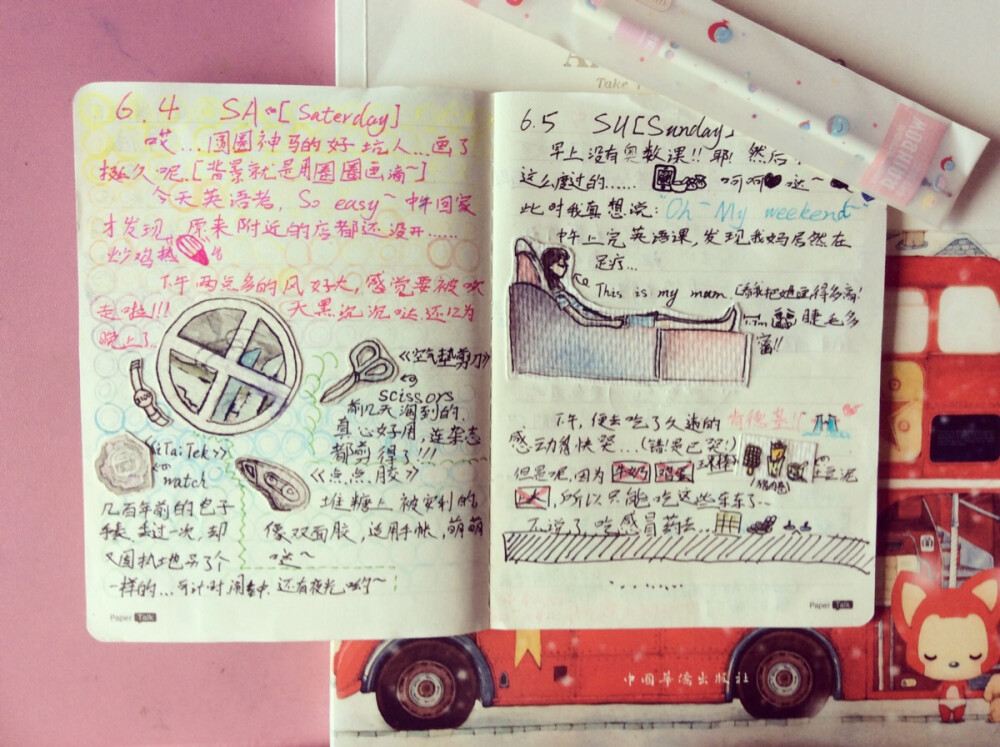 6.4 SA [Saterday]
哎...圈圈神马的好坑人...画了
挺久呢.[背景就是用圈圈画滴~]
今天英语考, So easy~ 中午回家
才发现, 原来附近的店都还没开......
炒鸡热
下午两点多的风好大, 感觉要被吹
走啦!!! 天黑沉沉哒.还以为
晚上了..
《空气垫剪刀》
scissors
前几天淘到的.
真心好用, 连杂志
都剪得了!!!
《iTaiTek》
match
几百年前的电子
手表, 丢过一次, 却
又固执地买了个
一样的... 可计时.闹钟.还有夜光哟~
《点点胶》
堆糖上被安利的,
像双面胶, 适用手帐, 萌萌
哒~
Paper Talk
6.5 SU [Sunday]
早上没有奥数课!! 耶! 然后
这么度过的...... 呵呵 哒~
此时我真想说: "Oh~ My weekend"
中午上完英语课, 发现我妈居然在
足疗...
This is my mum. [看我把她画得多高!
睫毛多
密!!
下午, 便去吃了久违的 肯德基!!
感动得快哭...(错是已哭!)
但是呢, 因为 牛奶 鸡蛋
, 所以只能吃这些东东了~
不说了, 吃感冒药去...
.......
Paper Talk
Take
RAINBOW
中国华侨出版社